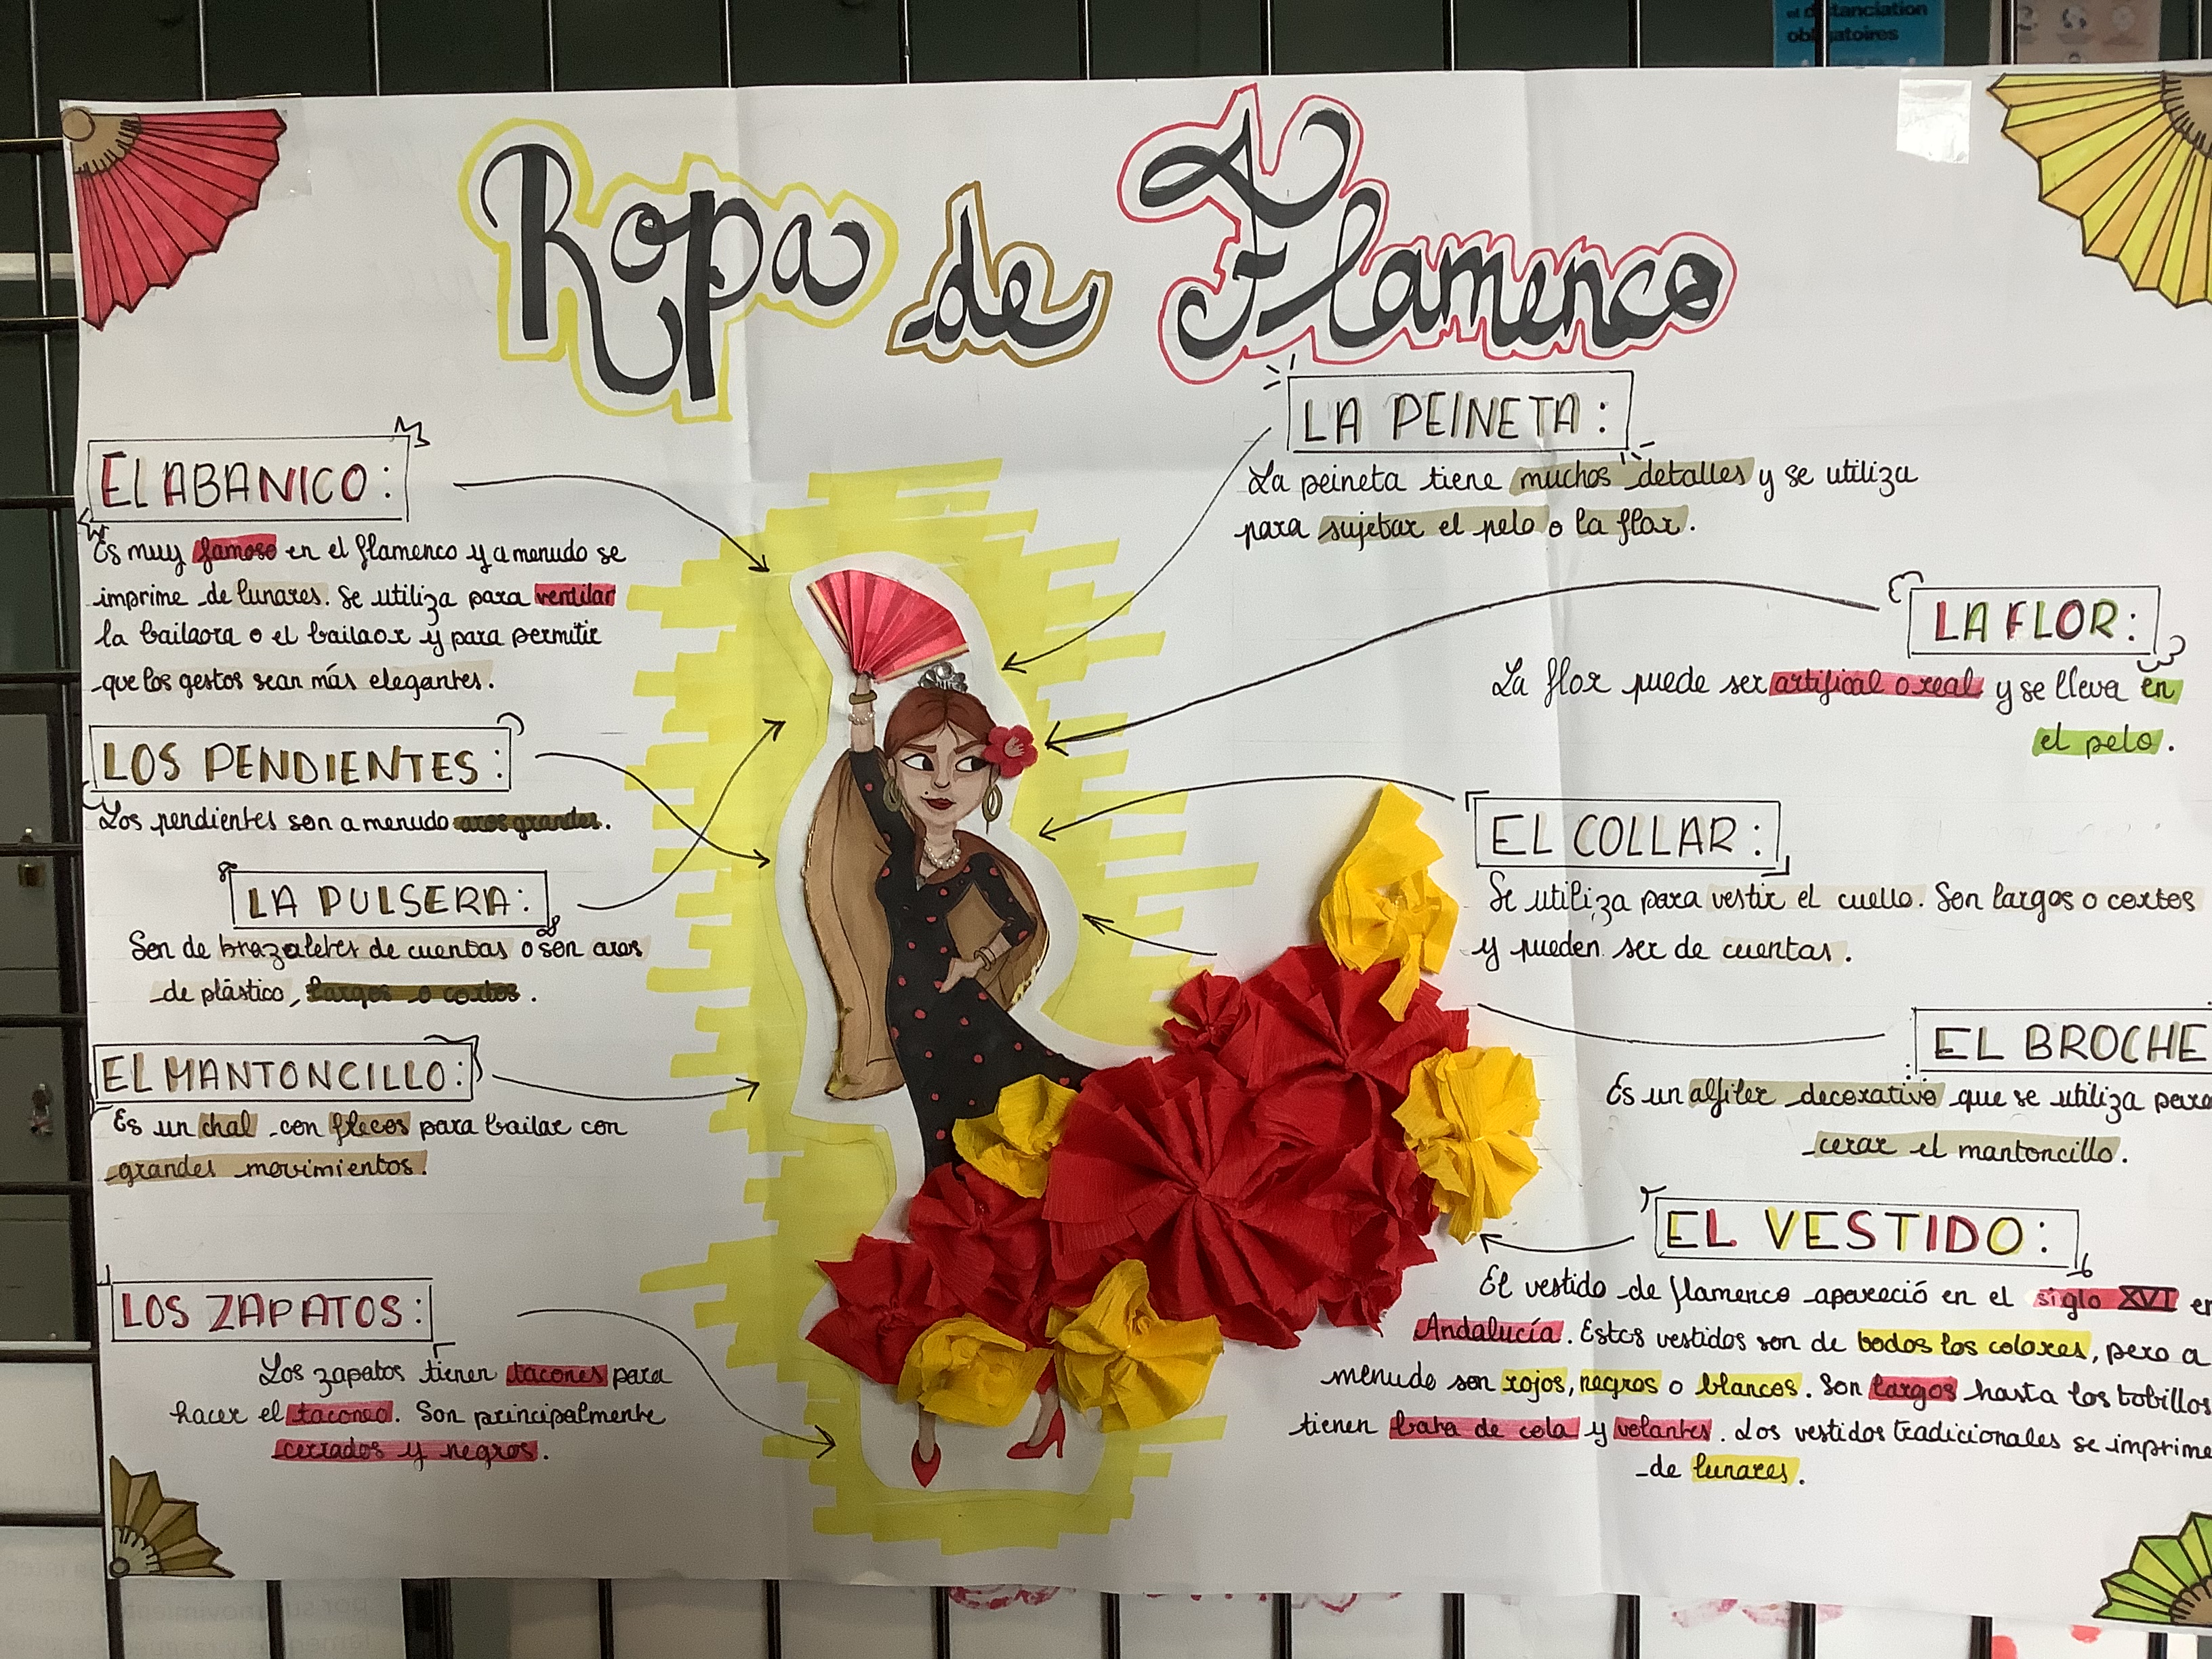 el distanciation
obligatoires
Ropa de Flamenco
EL ABANICO:
Es muy famoso en el flamenco y a menudo se
imprime de lunares. Se utiliza para ventilar
la bailaora o el bailaor y para permitir
que los gestos sean más elegantes.
LOS PENDIENTES:
Los pendientes son a menudo aros grandes.
LA PULSERA:
Son de brazaletes de cuentas o son aros
de plástico, largos o cortos.
EL MANTONCILLO:
Es un chal con flecos para bailar con
grandes movimientos.
LOS ZAPATOS:
Los zapatos tienen tacones para
hacer el taconeo. Son principalmente
cerrados y negros.
LA PEINETA:
La peineta tiene muchos detalles y se utiliza
para sujetar el pelo o la flor.
LA FLOR:
La flor puede ser artifical o real y se lleva en
el pelo.
EL COLLAR:
Se utiliza para vestir el cuello. Son largos o cortos
y pueden ser de cuentas.
EL BROCHE
Es un alfiler decorativo que se utiliza para
cerar el mantoncillo.
EL VESTIDO:
El vestido de flamenco apareció en el siglo XVI en
Andalucía. Estos vestidos son de todos los colores, pero a
menudo son rojos, negros o blancos. Son largos hasta los tobillos
tienen bata de cola y volantes. Los vestidos tradicionales se imprime
de lunares.